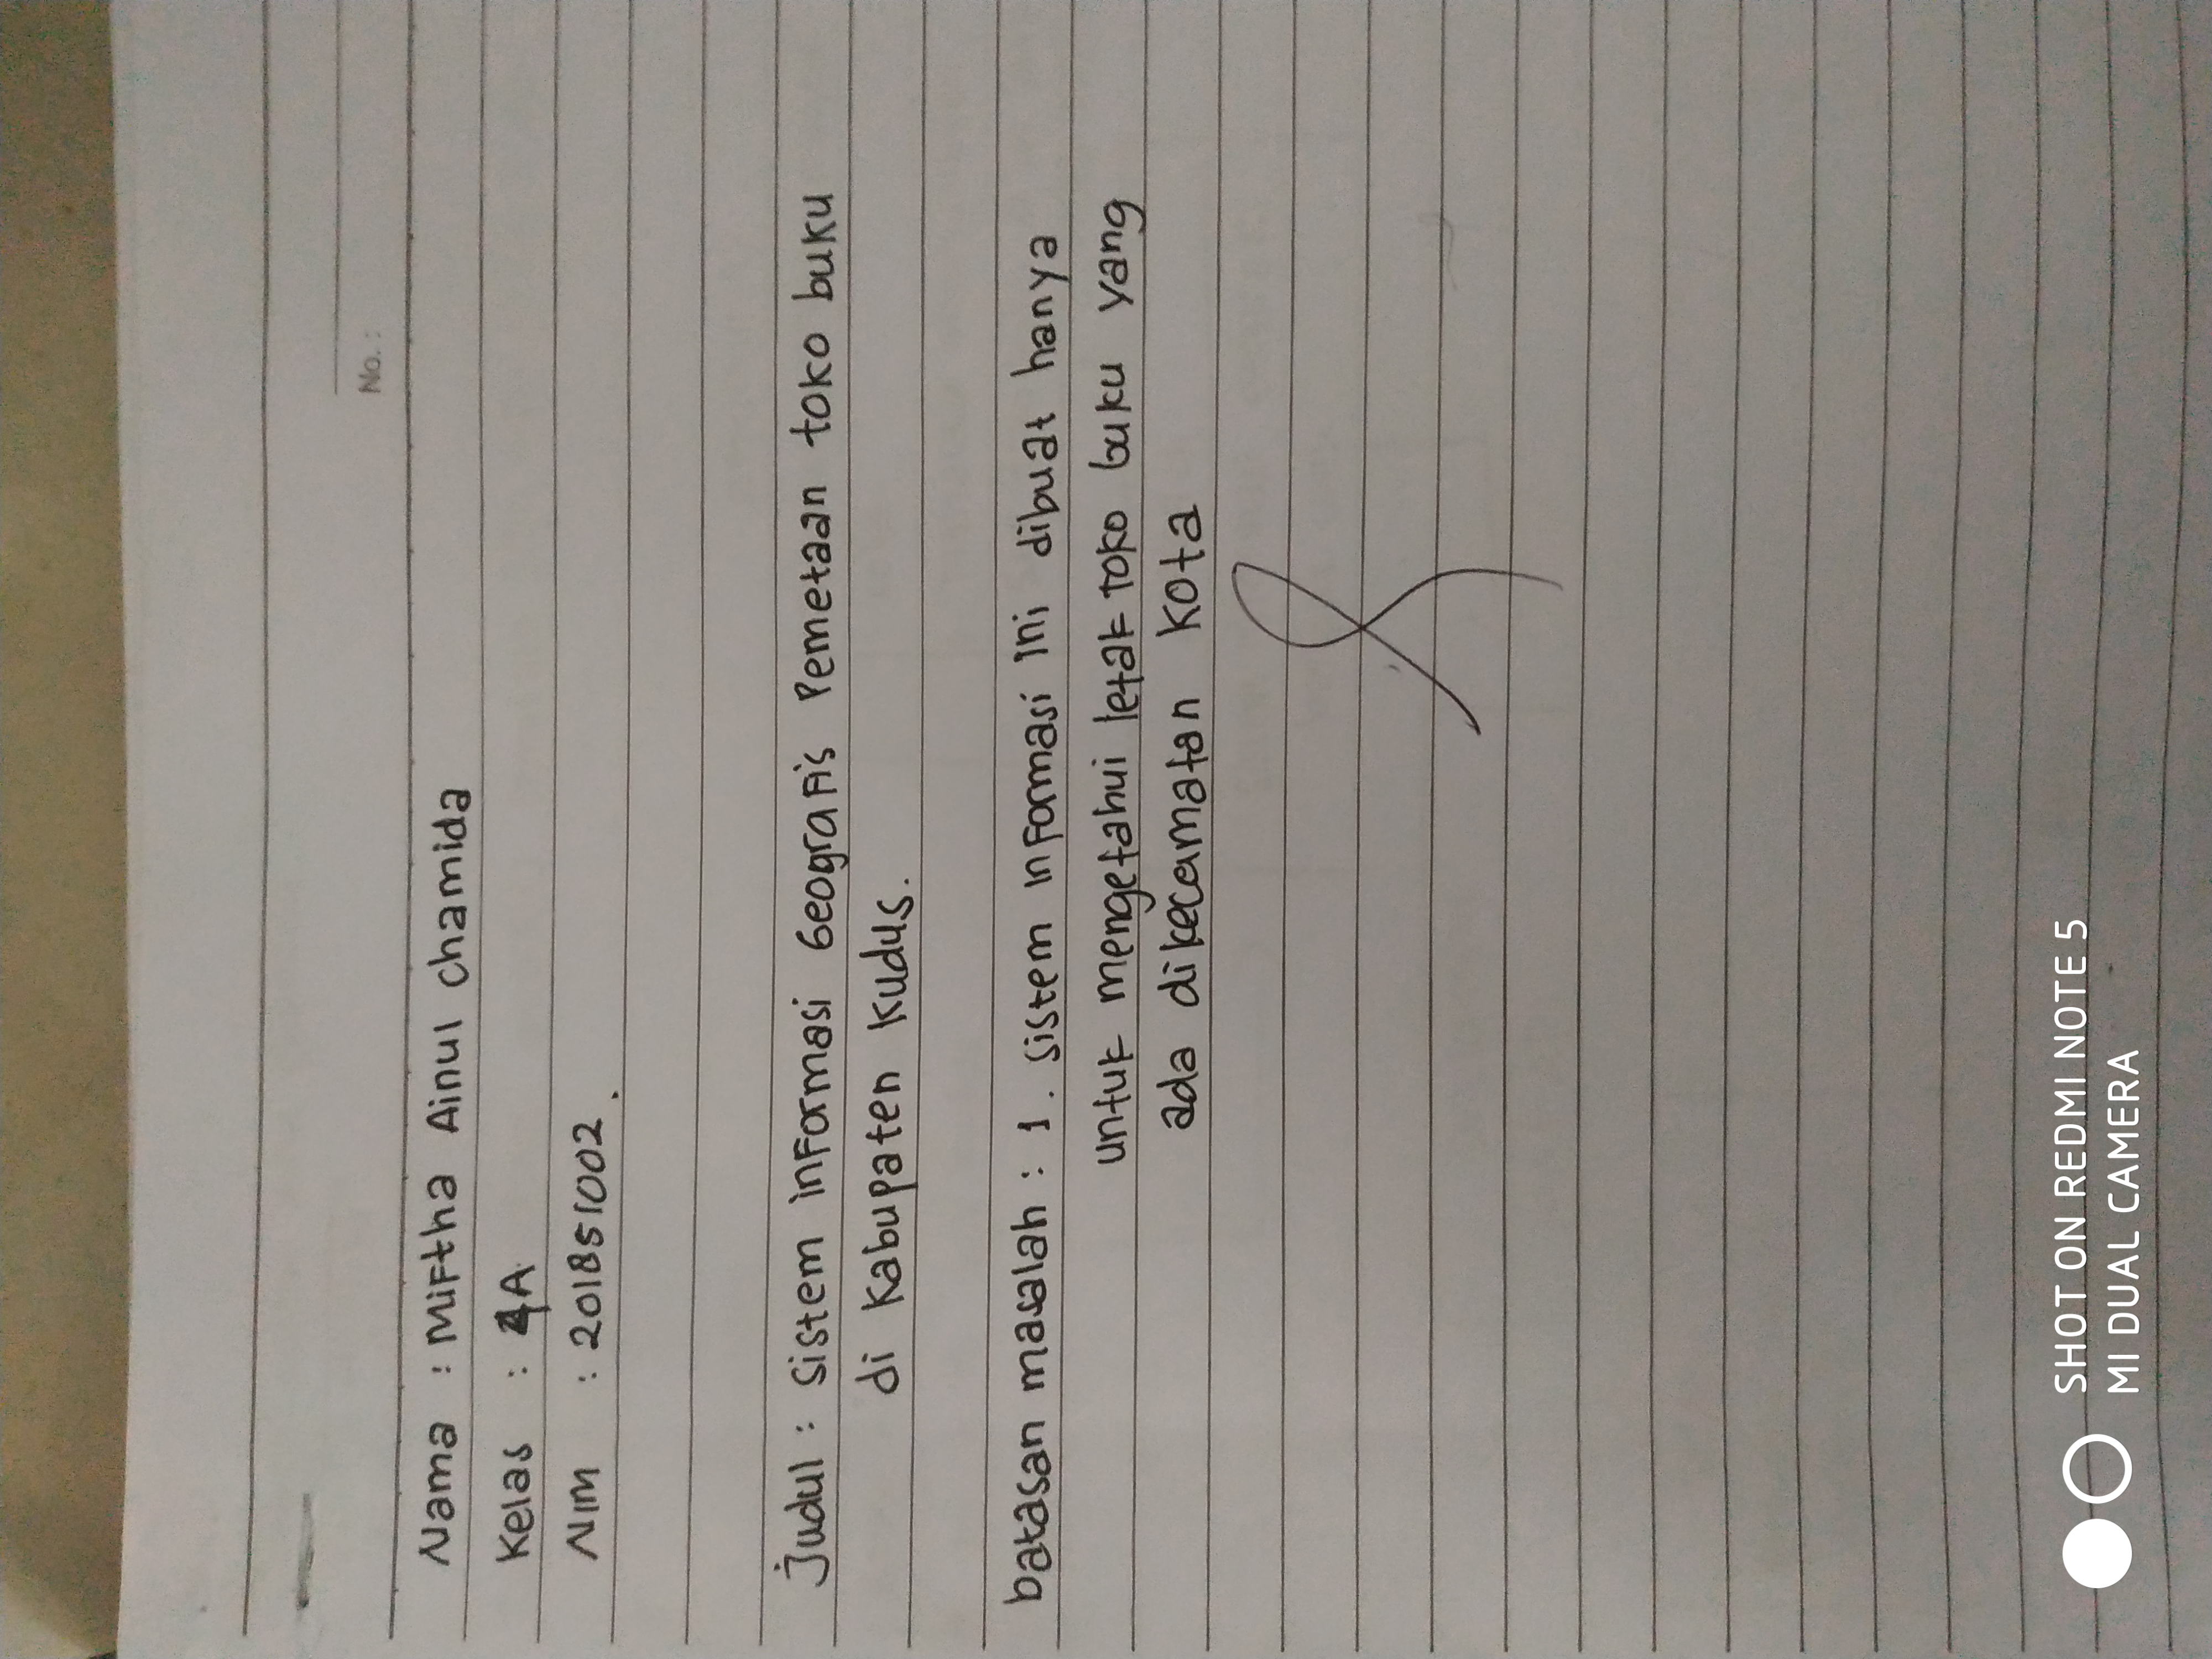 No. :
Nama : Miftha Ainul Chamida
Kelas : 4A
NIM : 201851002.
Judul : Sistem informasi Geografis Pemetaan toko buku
di Kabupaten Kudus.
batasan masalah : 1. sistem informasi ini dibuat hanya
untuk mengetahui letak toko buku yang
ada dikecamatan Kota
SHOT ON REDMI NOTE 5
MI DUAL CAMERA